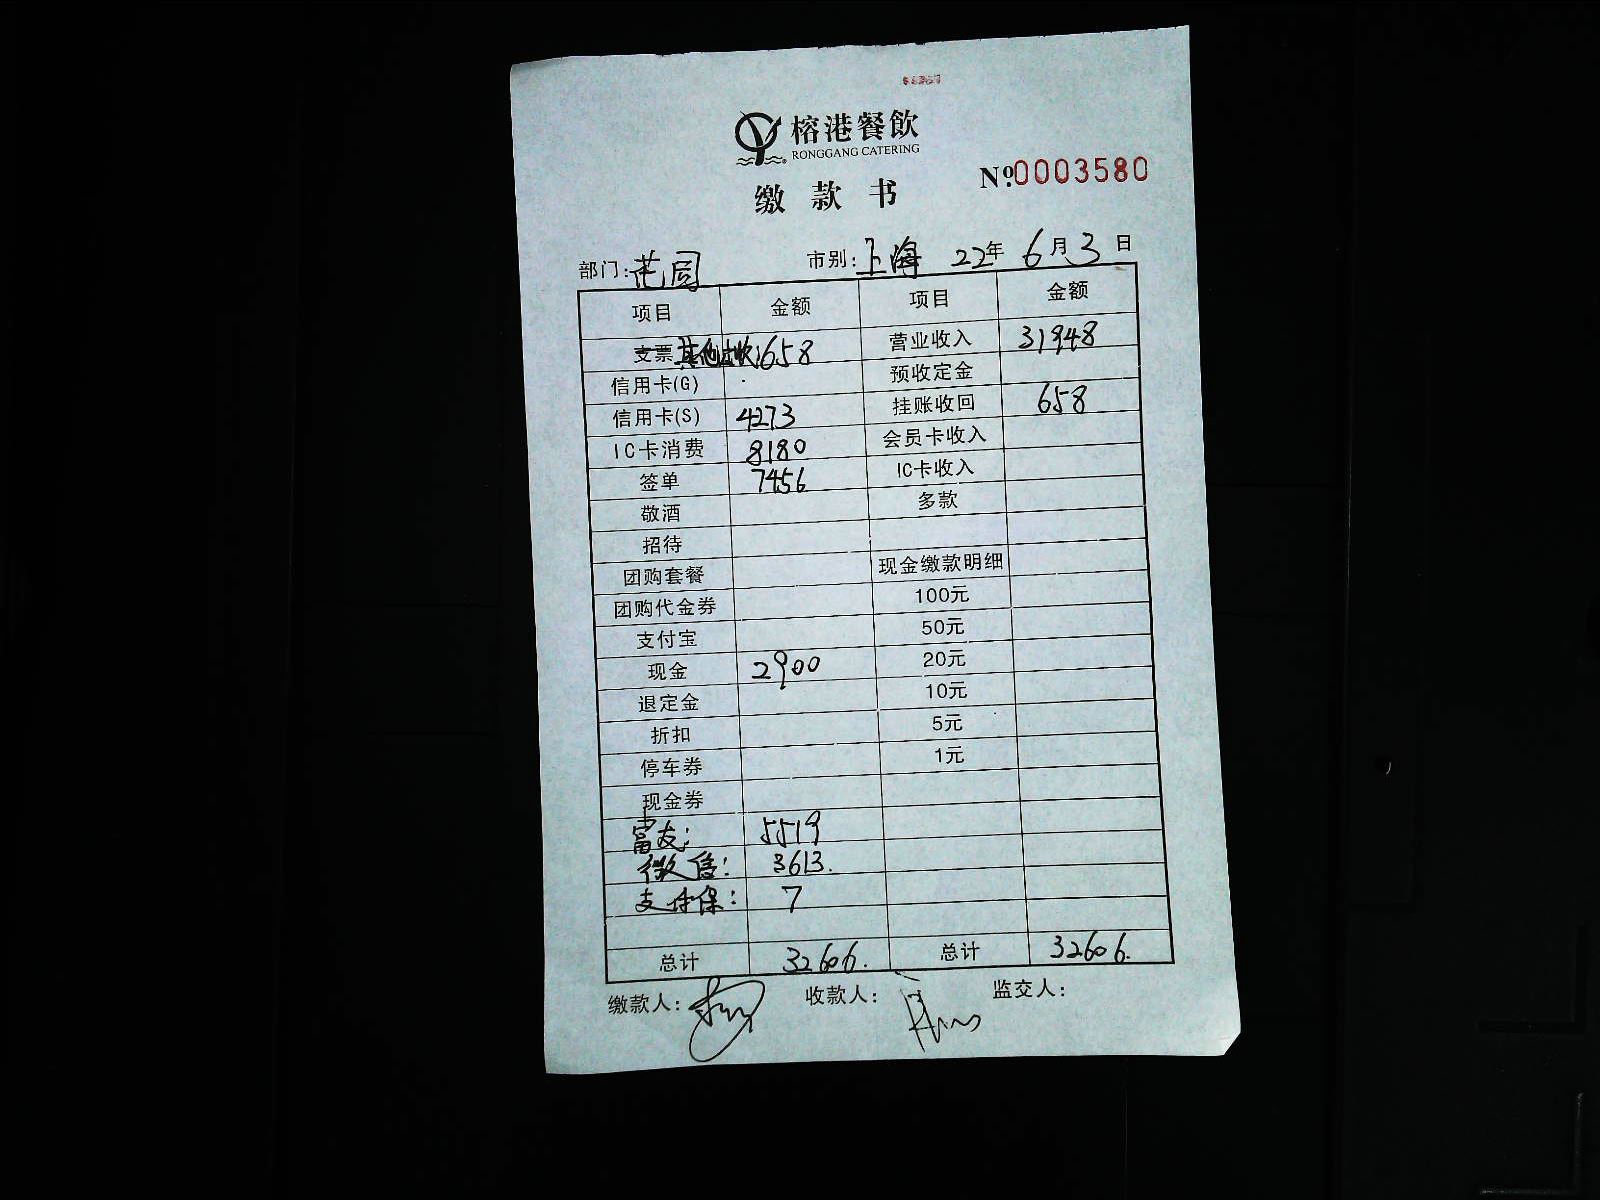 榕港餐飲
RONGGANG CATERING
缴款书
Nº.0003580
部门:花园 市别:上海 22年6月3日
项目 金额 项目 金额
支票 其他应收:658 营业收入 31948
信用卡(G) 预收定金
信用卡(S) 4273 挂账收回 658
IC卡消费 8180 会员卡收入
签单 7456 IC卡收入
敬酒 多款
招待
团购套餐 现金缴款明细
团购代金券 100元
支付宝 50元
现金 2900 20元
退定金 10元
折扣 5元
停车券 1元
现金券
富友: 5519
微信: 3613.
支付保: 7
总计 32606. 总计 32606.
缴款人: 收款人: 监交人: